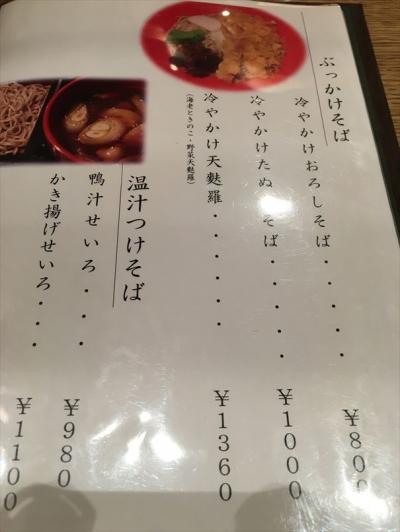 ぶっかけそば
冷やかけおろしそば・・・・ ￥800
冷やかけたぬ そば・・・・・ ￥1000
冷やかけ天麩羅・・・・・・ ￥1360
（海老ときのこ・野菜天麩羅）
温汁つけそば
鴨汁せいろ・・・・ ￥980
かき揚げせいろ・・・ ￥1100